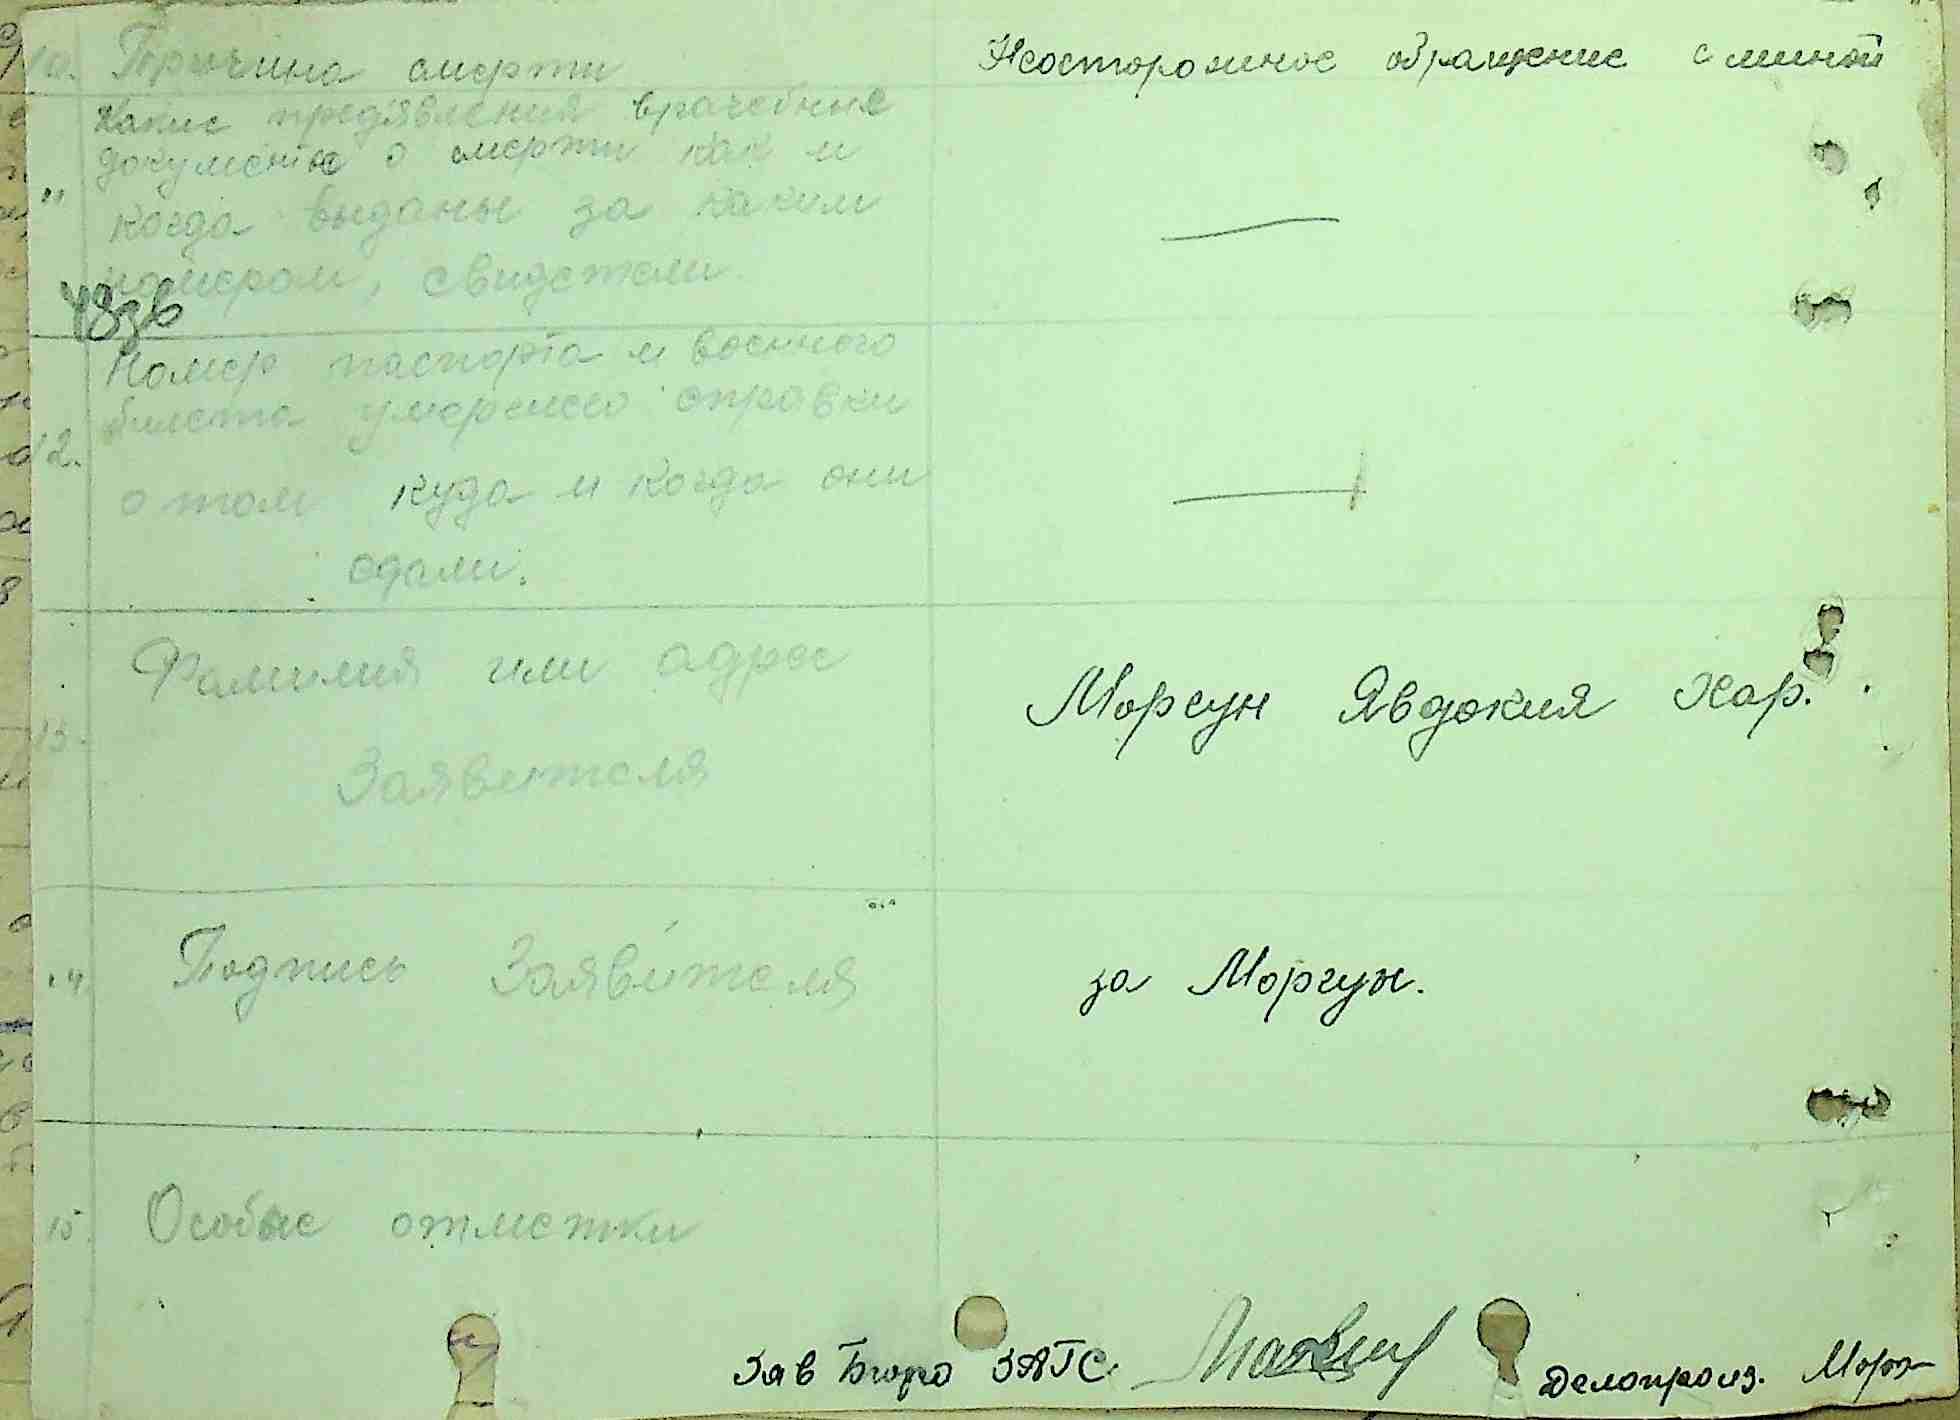 10. Причина смерти Неосторожное обращение с миной
Какие предявления врачебные
документы о смерти как и
11 когда выданы за каким
номером, свидетели.
48зв
Номер паспорта и военного
билета умершего справки
12. о том куда и когда они
сдали.
Фамилия или адрес Моргун Явдокия Хар.
13.
Заявителя
14. Подпись Заявителя за Моргун.
15. Особые отметки
Зав Бюро ЗАГС. Делопроиз.